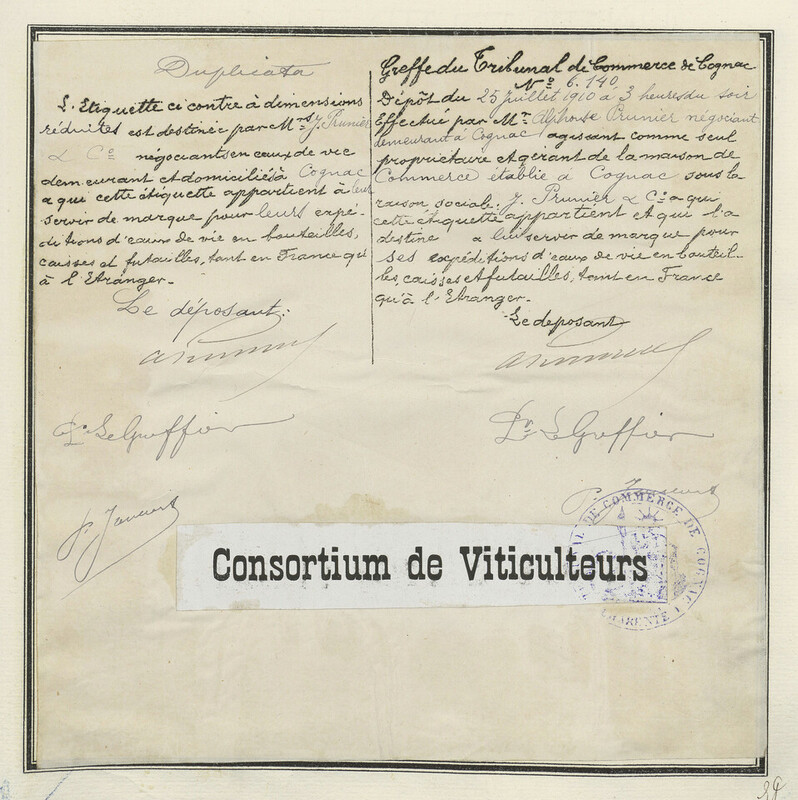 Duplicata
L'Etiquette ci contre à dimensions
réduites est destinée par Mrs J. Prunier
& Co négociants en eaux de vie
demeurant et domiciliés à Cognac
à qui cette étiquette appartient à leur
servir de marque pour leurs expé-
ditions d'eaux de vie en bouteilles,
caisses et futailles, tant en France qu'
à l'Etranger.
Le déposant:
Pr Le Greffier
Greffe du Tribunal de Commerce de Cognac
No 6.140
Dépôt du 25 juillet 1910 à 3 heures du soir
Effectué par Mr Alphonse Prunier négociant
demeurant à Cognac agissant comme seul
propriétaire et gérant de la maison de
Commerce établie à Cognac sous la
raison sociale: J. Prunier & Co à qui
cette étiquette appartient et qui l'a
destine a lui servir de marque pour
ses expéditions d'eaux de vie en bouteil-
les, caisses et futailles, tant en France
qu'à l'Etranger.
Le deposant
Pr Le Greffier
Consortium de Viticulteurs
DE COMMERCE DE COGNAC
CHARENTE